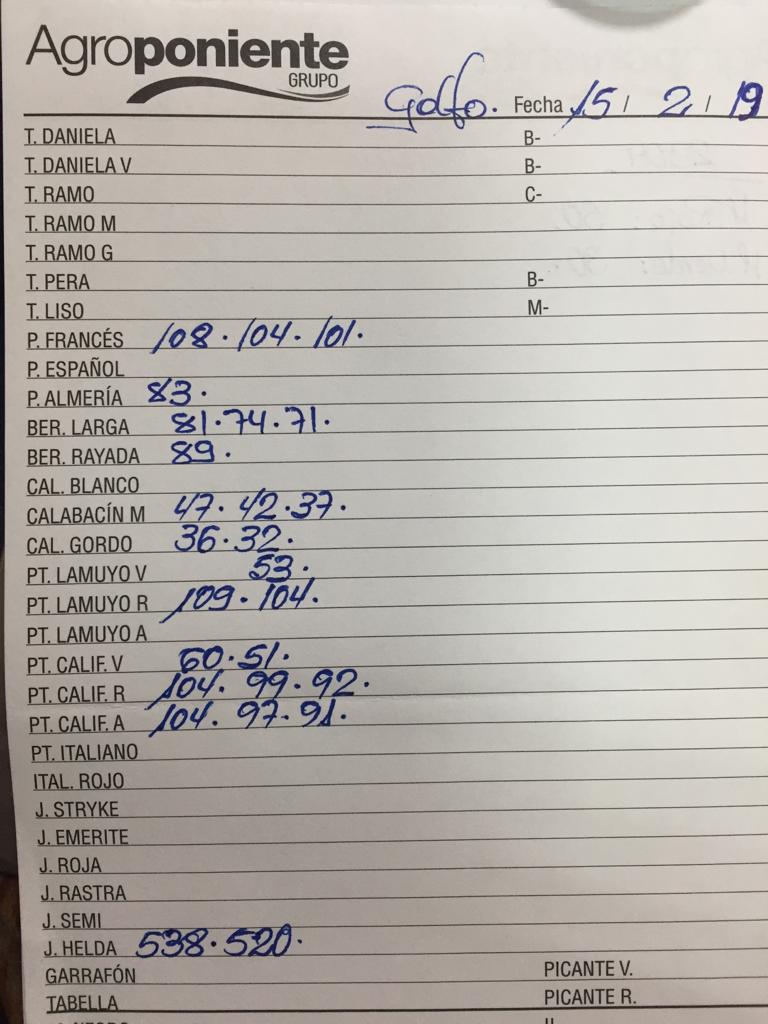 Agroponiente
GRUPO
Golfo. Fecha 15 / 2 / 19
T. DANIELA B-
T. DANIELA V B-
T. RAMO C-
T. RAMO M
T. RAMO G
T. PERA B-
T. LISO M-
P. FRANCÉS 108. 104. 101.
P. ESPAÑOL
P. ALMERÍA 83.
BER. LARGA 81.74.71.
BER. RAYADA 89.
CAL. BLANCO
CALABACÍN M 47. 42.37.
CAL. GORDO 36.32.
PT. LAMUYO V 53.
PT. LAMUYO R 109. 104.
PT. LAMUYO A
PT. CALIF. V 60.51.
PT. CALIF. R 104. 99.92.
PT. CALIF. A 104. 97.91.
PT. ITALIANO
ITAL. ROJO
J. STRYKE
J. EMERITE
J. ROJA
J. RASTRA
J. SEMI
J. HELDA 538.520.
GARRAFÓN PICANTE V.
TABELLA PICANTE R.